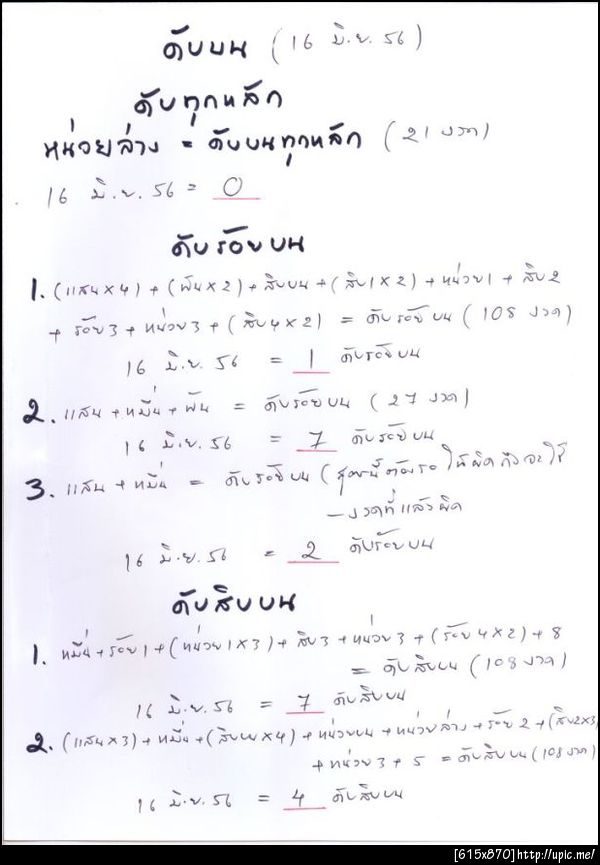 ดับบน (16 มิ.ย. 56)
ดับทุกหลัก
หน่วยล่าง = ดับบนทุกหลัก (21 งวด)
16 มิ.ย. 56 = 0
ดับร้อยบน
1. (แสนx4) + (พันx2) + สิบบน + (สิบ1x2) + หน่วย1 + สิบ2
+ ร้อย3 + หน่วย3 + (สิบ4x2) = ดับร้อยบน (108 งวด)
16 มิ.ย. 56 = 1 ดับร้อยบน
2. แสน + หมื่น + พัน = ดับร้อยบน (27 งวด)
16 มิ.ย. 56 = 7 ดับร้อยบน
3. แสน + หมื่น = ดับร้อยบน (สูตรนี้ต้องรอให้ผิดถึงจะใช้
- งวดที่แล้วผิด
16 มิ.ย. 56 = 2 ดับร้อยบน
ดับสิบบน
1. หมื่น + ร้อย1 + (หน่วย1x3) + สิบ3 + หน่วย3 + (ร้อย4x2) + 8
= ดับสิบบน (108 งวด)
16 มิ.ย. 56 = 7 ดับสิบบน
2. (แสนx3) + หมื่น + (สิบบนx4) + หน่วยบน + หน่วยล่าง + ร้อย2 + (สิบ2x3)
+ หน่วย3 + 5 = ดับสิบบน (108 งวด)
16 มิ.ย. 56 = 4 ดับสิบบน
[615x870]http://upic.me/